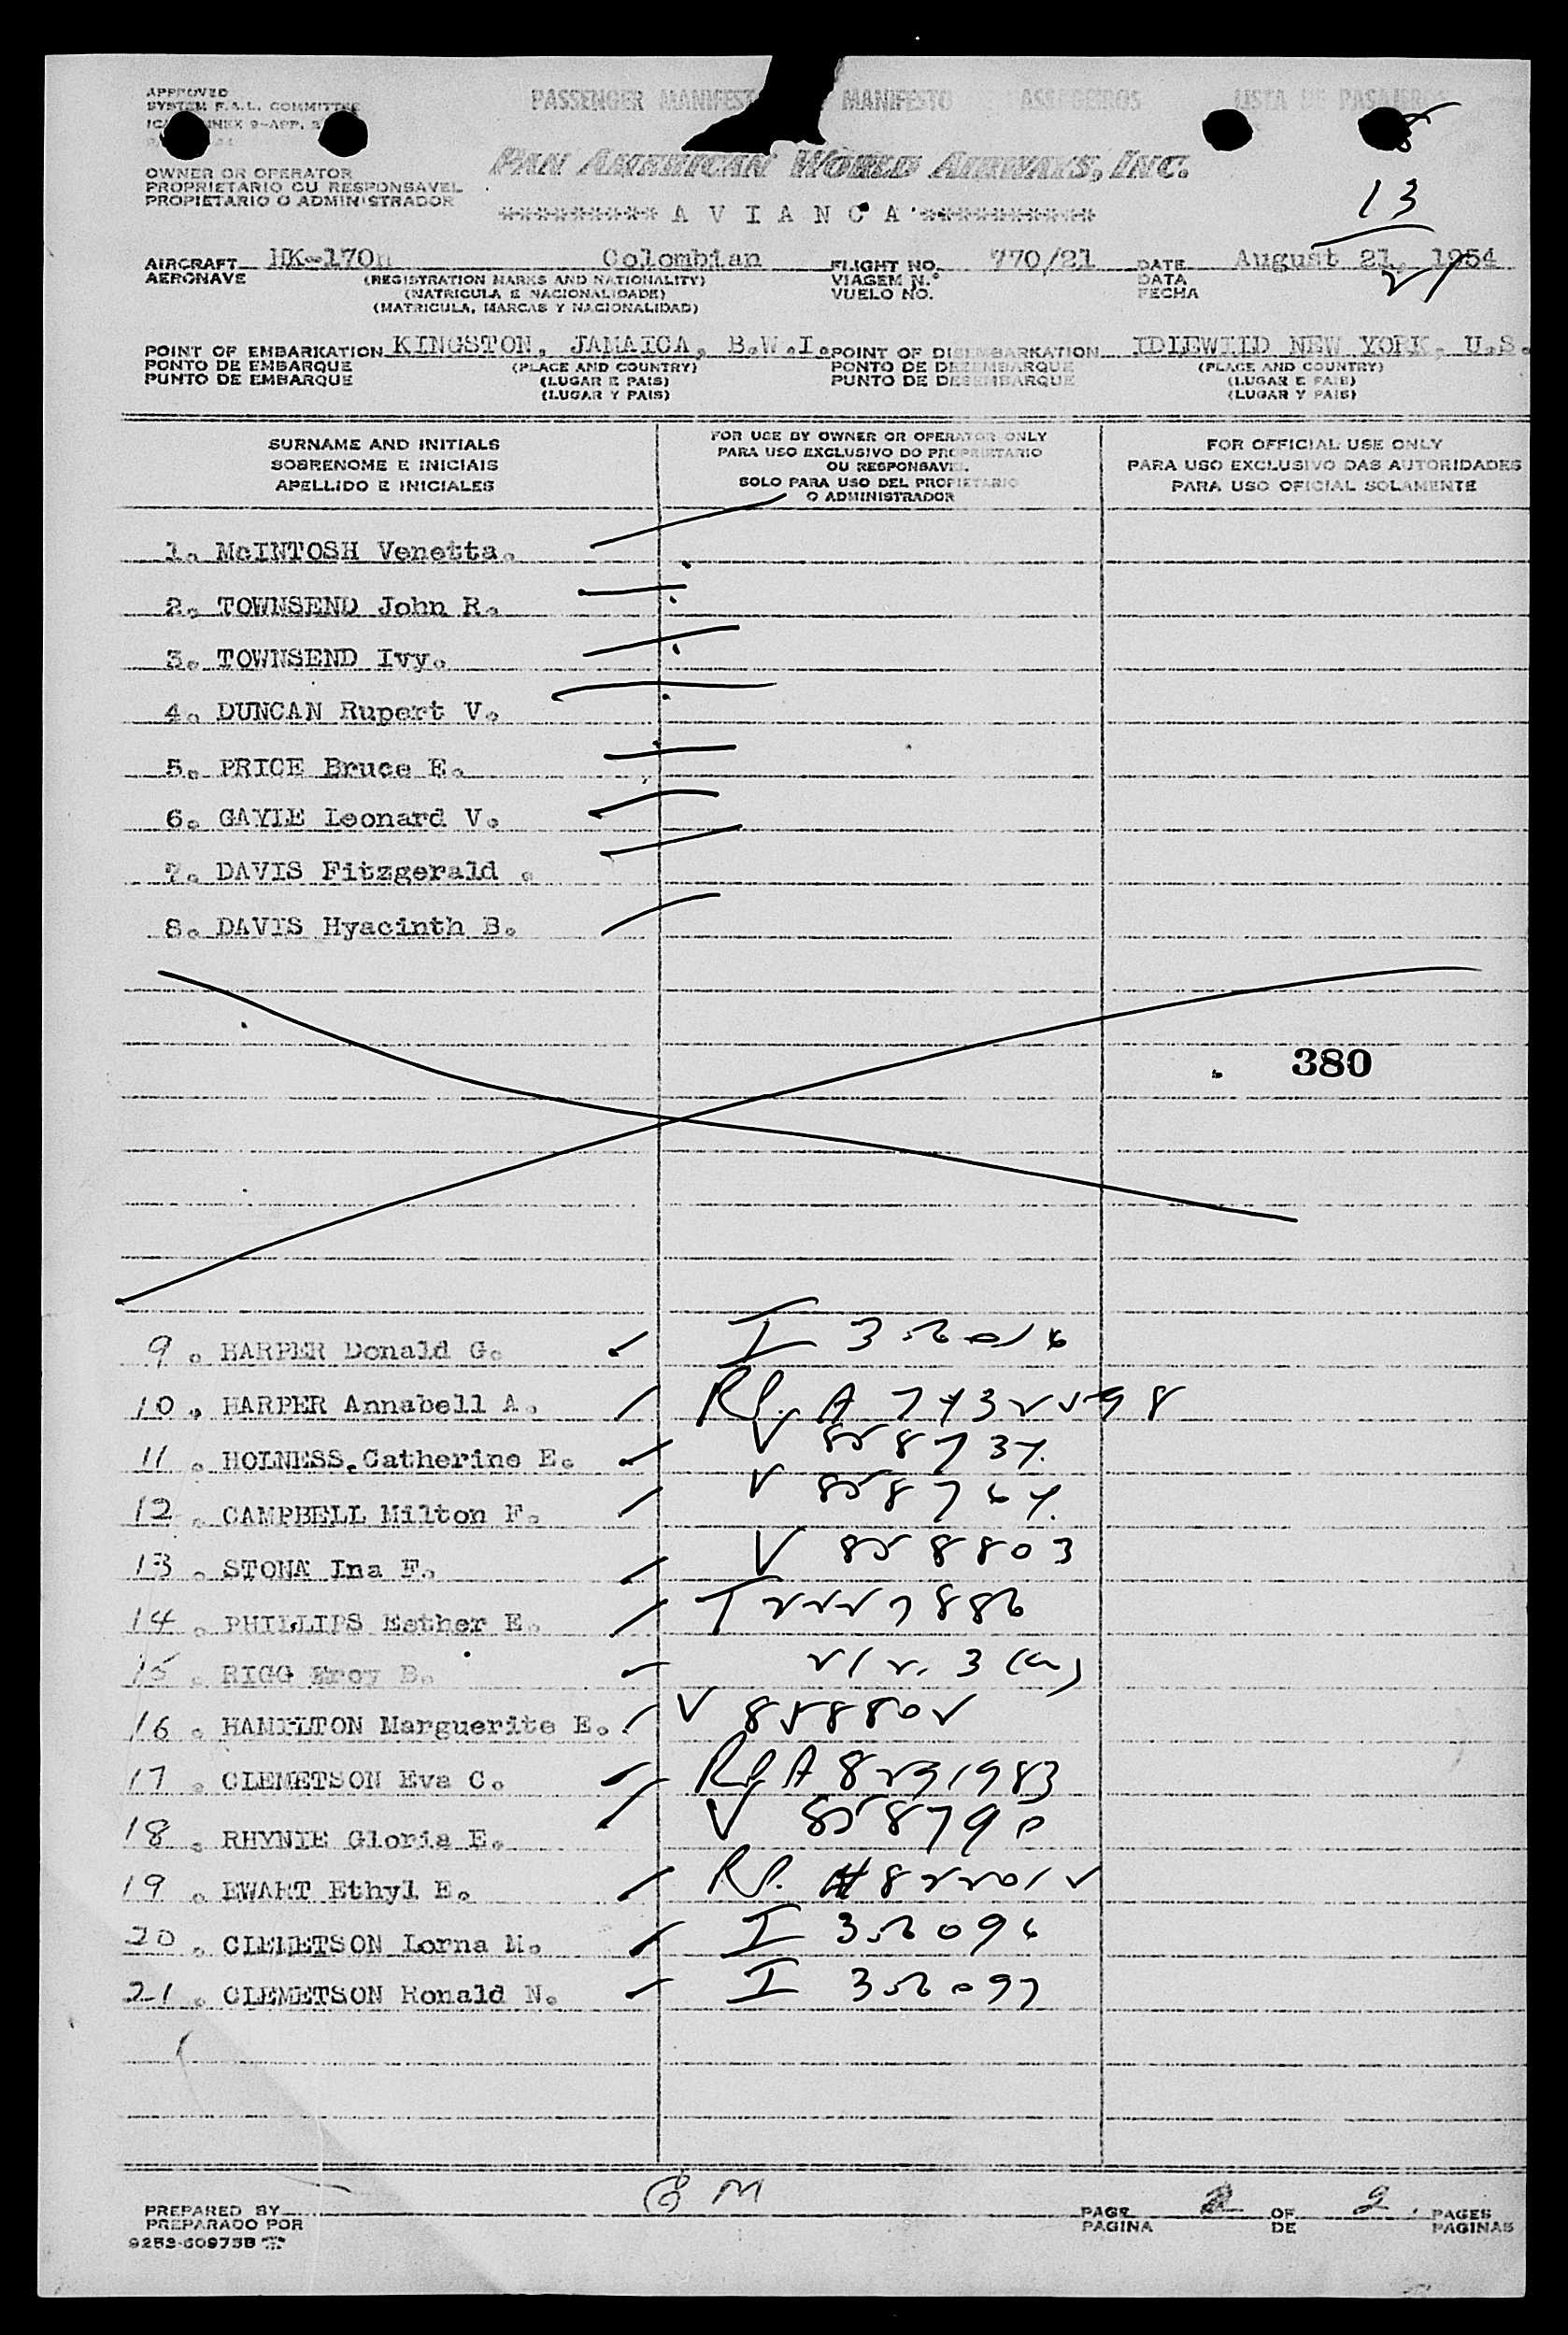 APPROVED
SYSTEM F.A.L. COMMITTEE
PASSENGER MANIFEST MANIFESTO PASSAGEIROS LISTA DE PASAJEROS
PAN AMERICAN WORLD AIRWAYS, INC.
OWNER OR OPERATOR
PROPRIETARIO OU RESPONSAVEL
PROPIETARIO O ADMINISTRADOR
********* A V I A N C A **********
13
AIRCRAFT HK-170 Colombian FLIGHT NO. 770/21 DATE August 21, 1954
AERONAVE (REGISTRATION MARKS AND NATIONALITY) VIAGEM N.º DATA
(MATRICULA E NACIONALIDADE) VUELO NO. FECHA
(MATRICULA, MARCAS Y NACIONALIDAD)
21
POINT OF EMBARKATION KINGSTON, JAMAICA, B.W.I. POINT OF DISEMBARKATION IDLEWILD NEW YORK, U.S.
PONTO DE EMBARQUE (PLACE AND COUNTRY) PONTO DE DEZEMBARQUE (PLACE AND COUNTRY)
PUNTO DE EMBARQUE (LUGAR E PAIS) PUNTO DE DESEMBARQUE (LUGAR E PAIS)
(LUGAR Y PAIS) (LUGAR Y PAIS)
SURNAME AND INITIALS
SOBRENOME E INICIAIS
APELLIDO E INICIALES
FOR USE BY OWNER OR OPERATOR ONLY
PARA USO EXCLUSIVO DO PROPRIETARIO
OU RESPONSAVEL.
SOLO PARA USO DEL PROPIETARIO
O ADMINISTRADOR
FOR OFFICIAL USE ONLY
PARA USO EXCLUSIVO DAS AUTORIDADES
PARA USO OFICIAL SOLAMENTE
1. McINTOSH Venetta.
2. TOWNSEND John R.
3. TOWNSEND Ivy.
4. DUNCAN Rupert V.
5. PRICE Bruce E.
6. GAYLE Leonard V.
7. DAVIS Fitzgerald .
8. DAVIS Hyacinth B.
380
9 . HARPER Donald G. I 352016
10 . HARPER Annabell A. RP. A 7432298
11 . HOLNESS, Catherine E. V 858734.
12 . CAMPBELL Milton F. V 858764.
13 . STONA Ina F. V 858803
14 . PHILLIPS Esther E. T 2227886
15 . RIGG Eroy B. 212.3(a)
16 . HAMILTON Marguerite E. V 858802
17 . CLEMETSON Eva C. RP A 8291983
18 . RHYNIE Gloria E. V 858790
19 . EWART Ethyl E. RP. # 822012
20 . CLEMETSON Lorna M. I 352096
21 . CLEMETSON Ronald N. I 352097
PREPARED BY
PREPARADO POR
PAGE 2 OF 2. PAGES
PAGINA DE PAGINAS